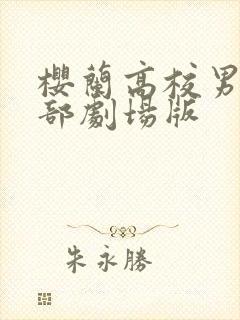 櫻蘭高校男
部劇場版
朱永勝